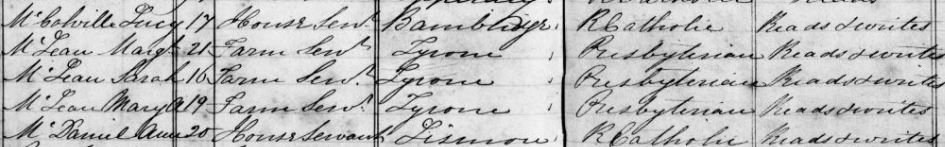 McColville Lucy 17 House Servt Bambridge R Catholic Reads & writes
McLean Margt 21 Farm Servt Tyrone Presbyterian Reads & writes
McLean Sarah 16 Farm Servt Tyrone Presbyterian Reads & writes
McLean Mary A 19 Farm Servt Tyrone Presbyterian Reads & writes
McDaniel Ann 20 House Servant Lismore R Catholic Reads & writes